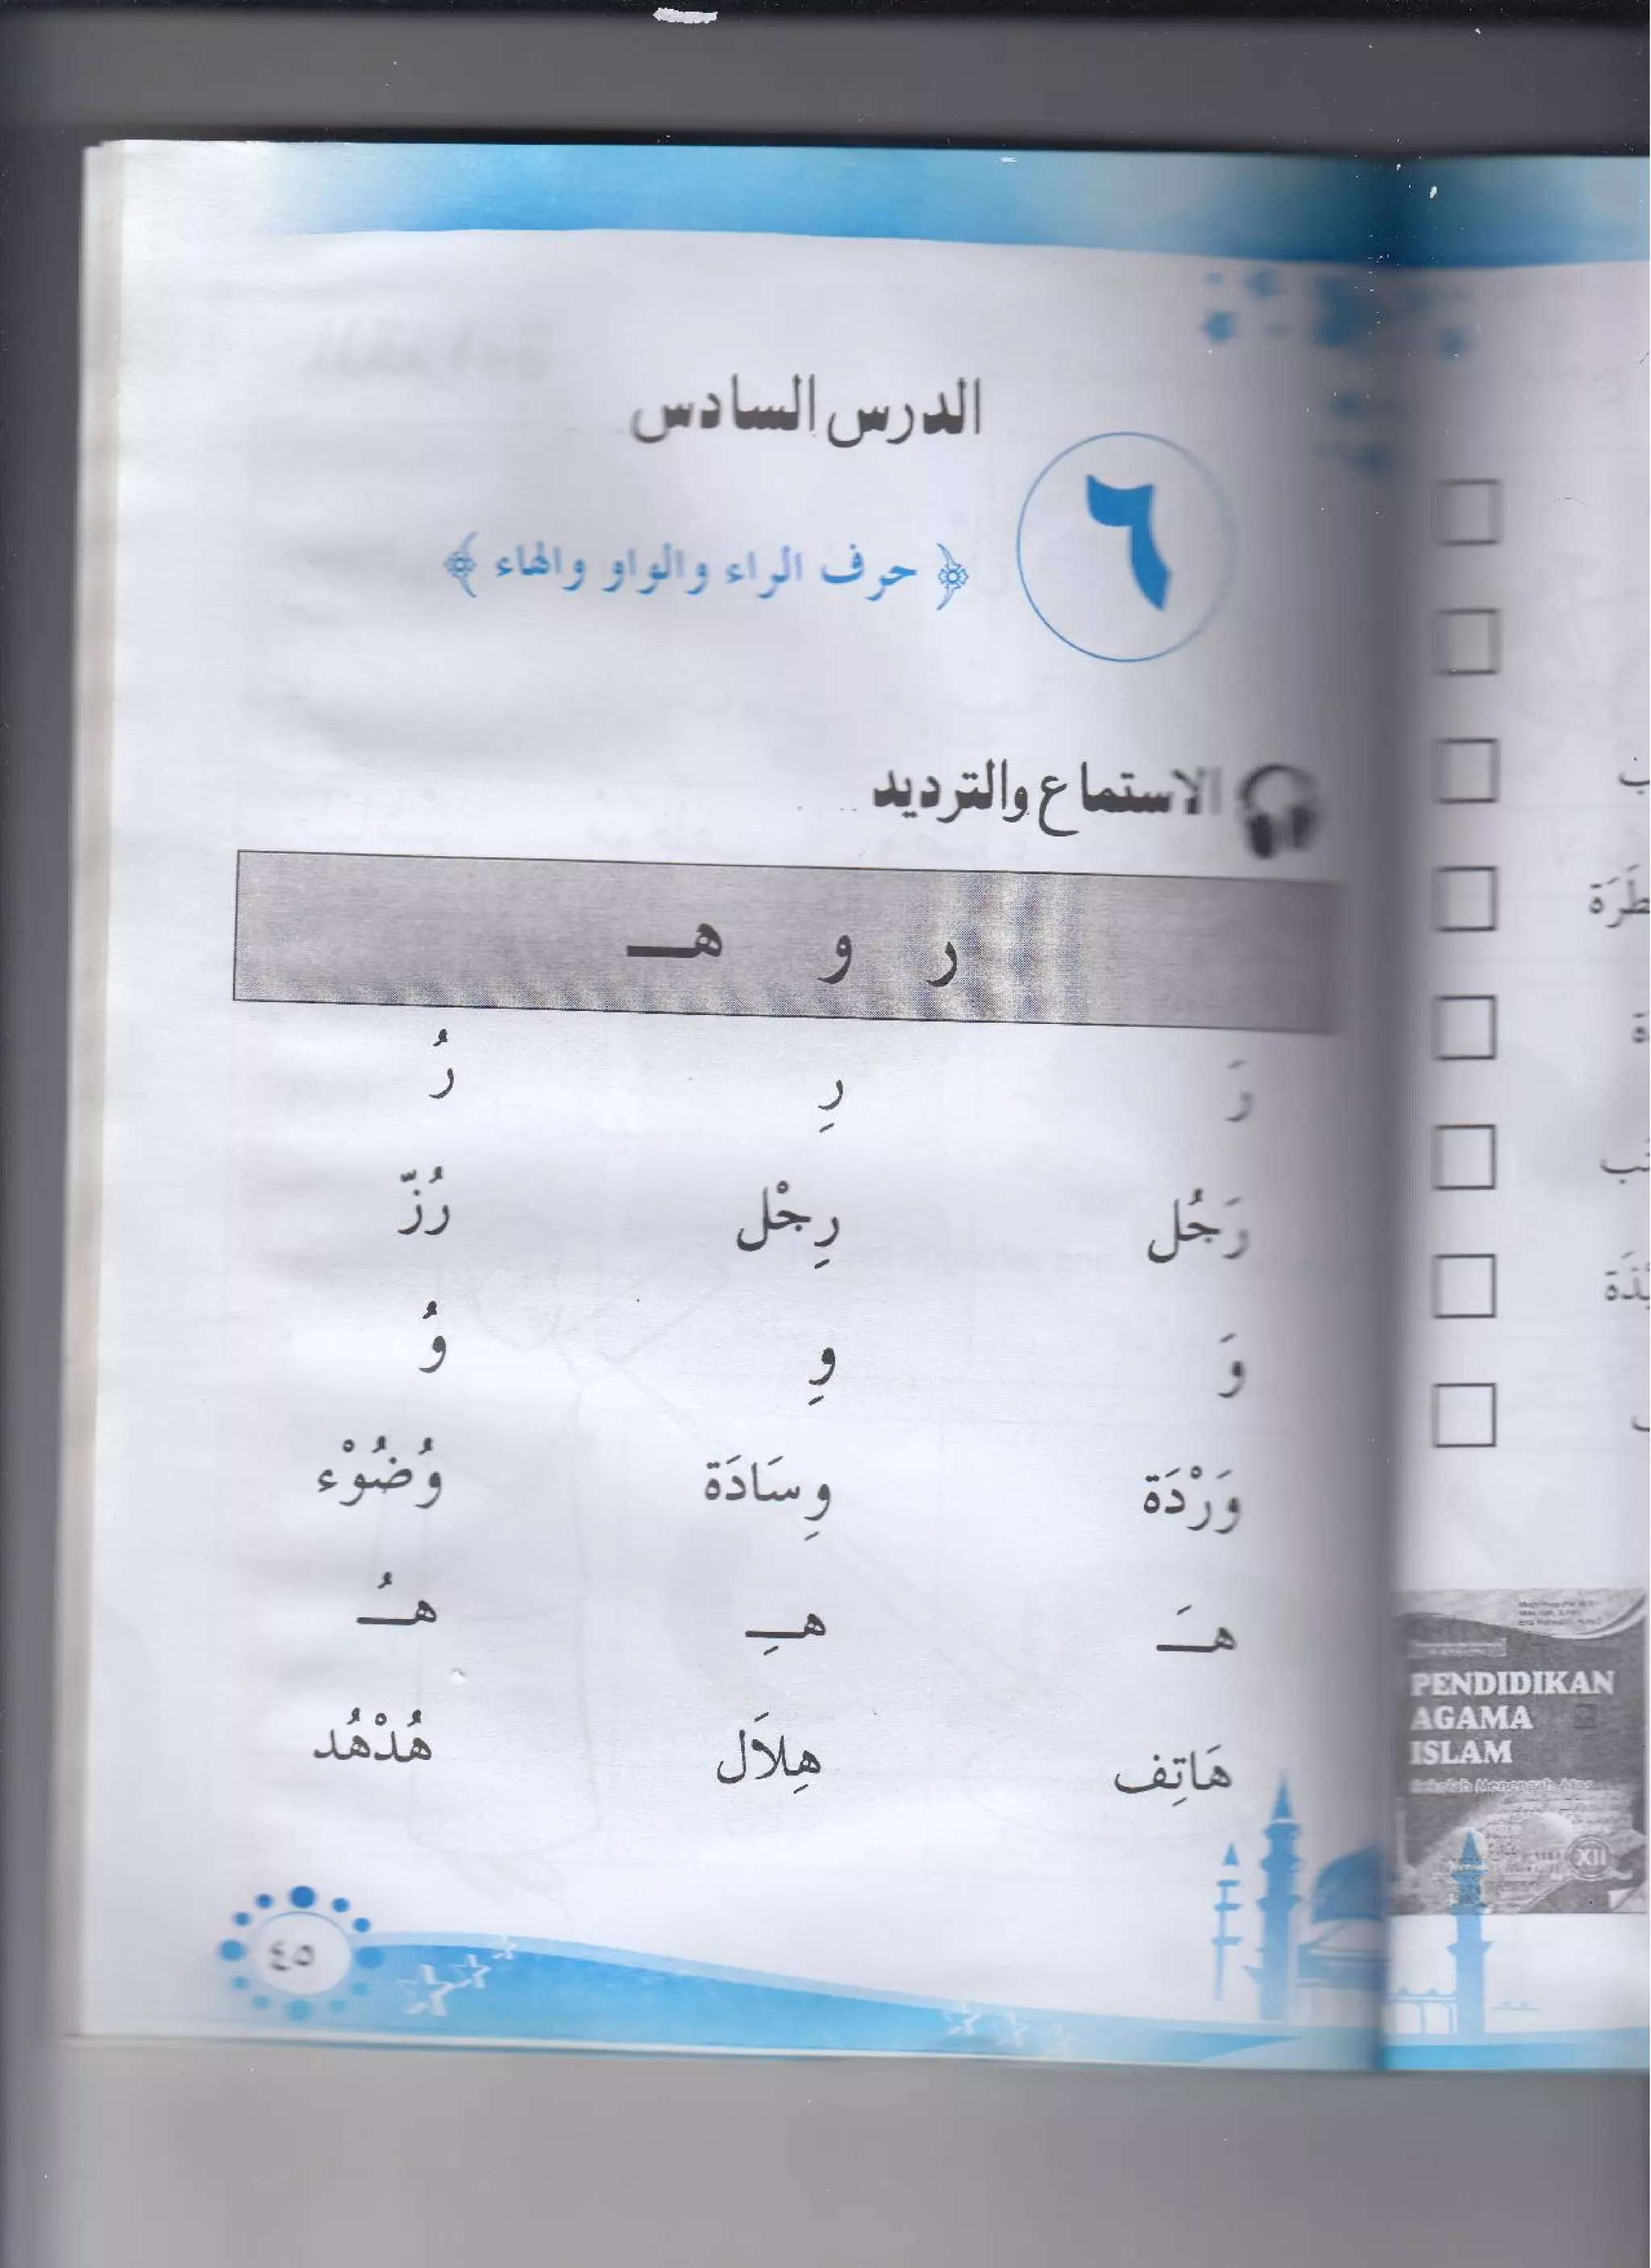 الدرس السادس
٦
﴿ حرف الراء والواو والهاء ﴾
الاستماع والترديد
ر و هـ
رَ رِ رُ
رَجُل رِجْل رُزّ
وَ وِ وُ
وَرْدَة وِسَادَة وُضُوْء
هَـ هِـ هُـ
هَاتِف هِلَال هُدْهُد
٤٥
PENDIDIKAN
AGAMA
ISLAM
Sekolah Menengah Atas
XII